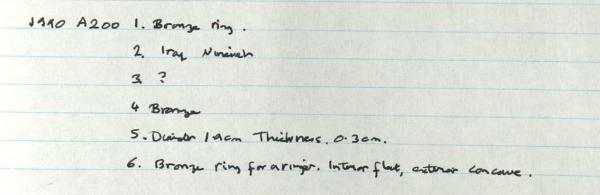 1990 A200 1. Bronze ring.
2. Iraq Nineveh
3. ?
4 Bronze
5. Diameter 1.9cm Thickness. 0.3cm.
6. Bronze ring for a finger. Interior flat, exterior concave.